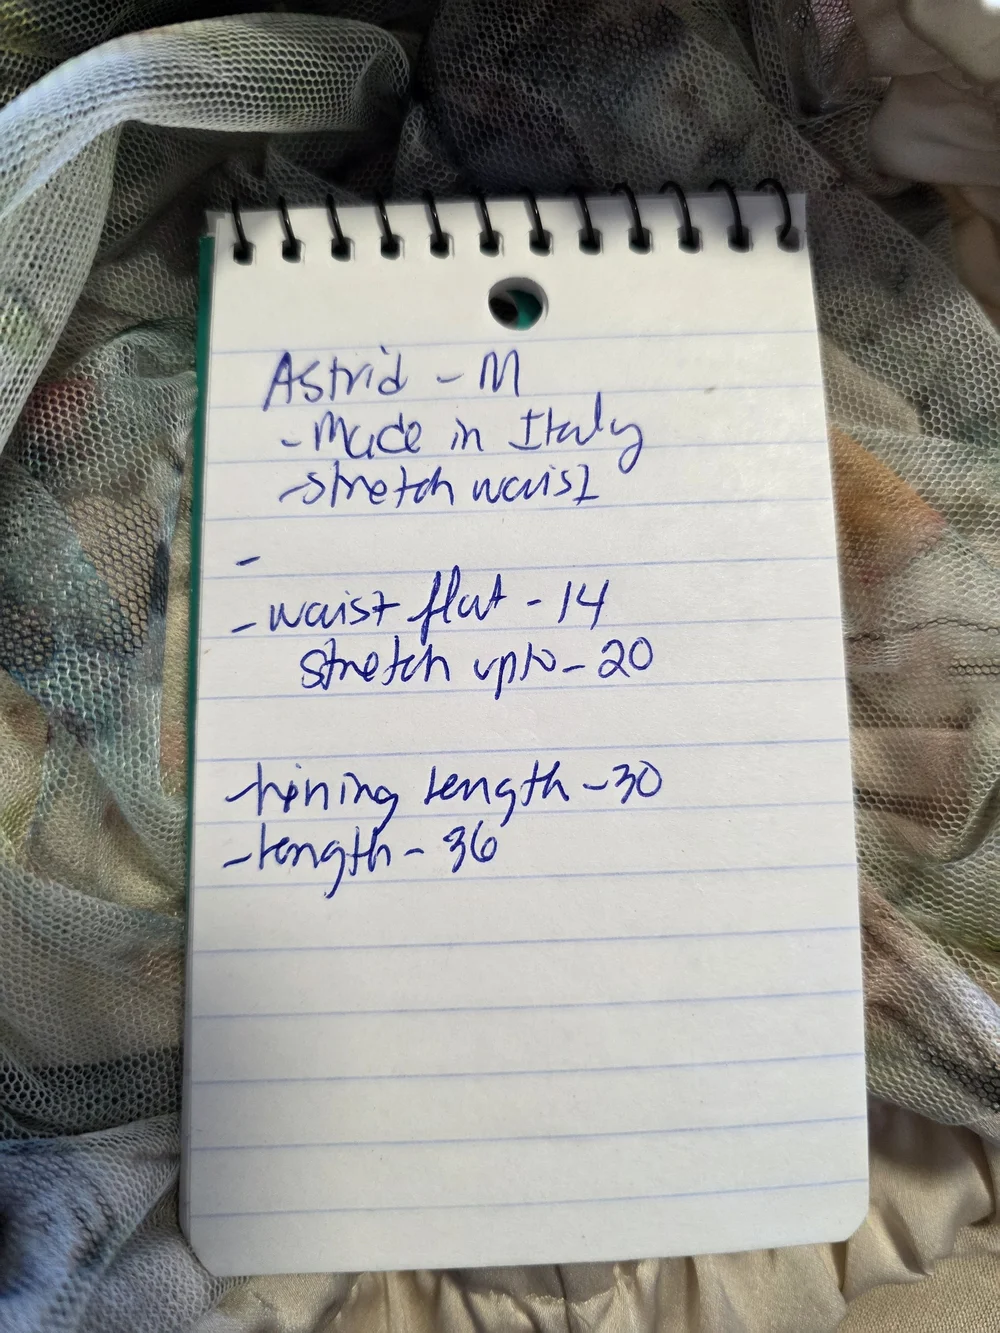 Astrid - M
- Made in Italy
- stretch waist
-
- waist flat - 14
stretch upto - 20
- lining length - 30
- length - 36